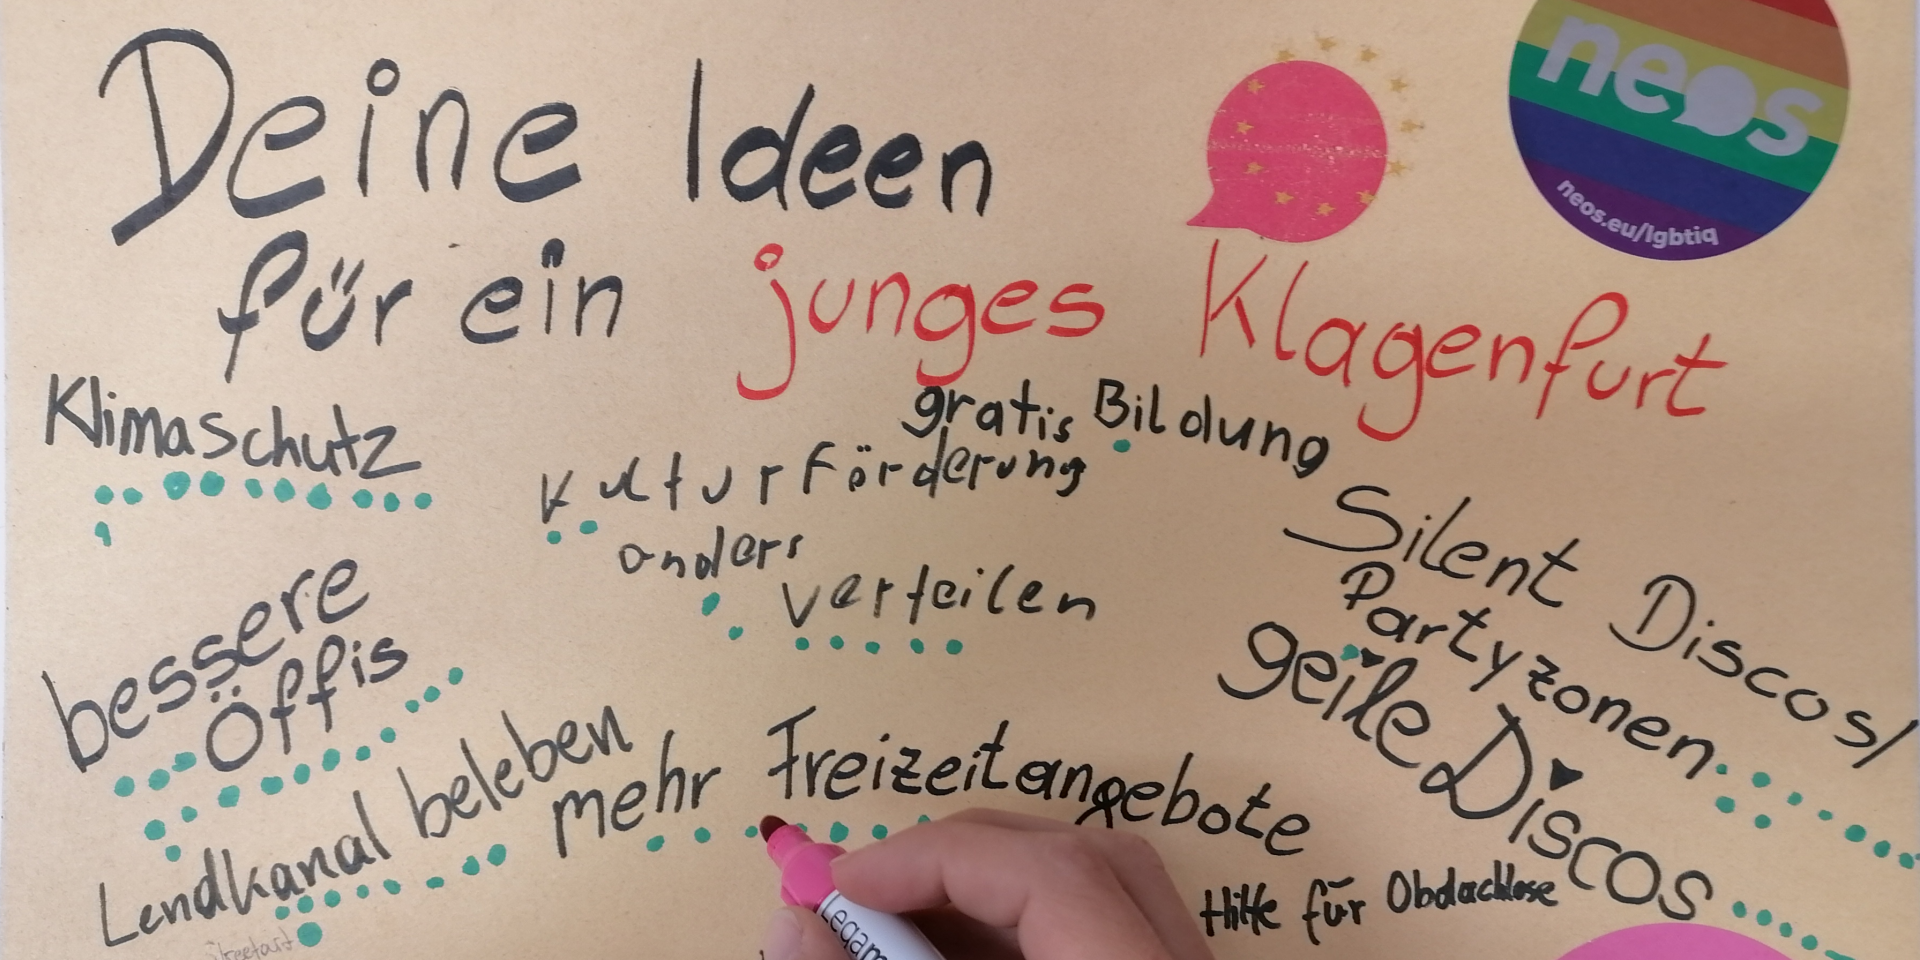 Deine Ideen
für ein junges Klagenfurt
neos
neos.eu/lgbtiq
Klimaschutz
gratis Bildung
Kulturförderung
anders
verteilen
Silent Discos/
Partyzonen
geile Discos
bessere
Öffis
Lendkanal beleben
mehr Freizeitangebote
Hilfe für Obdachlose
streetart
Legam